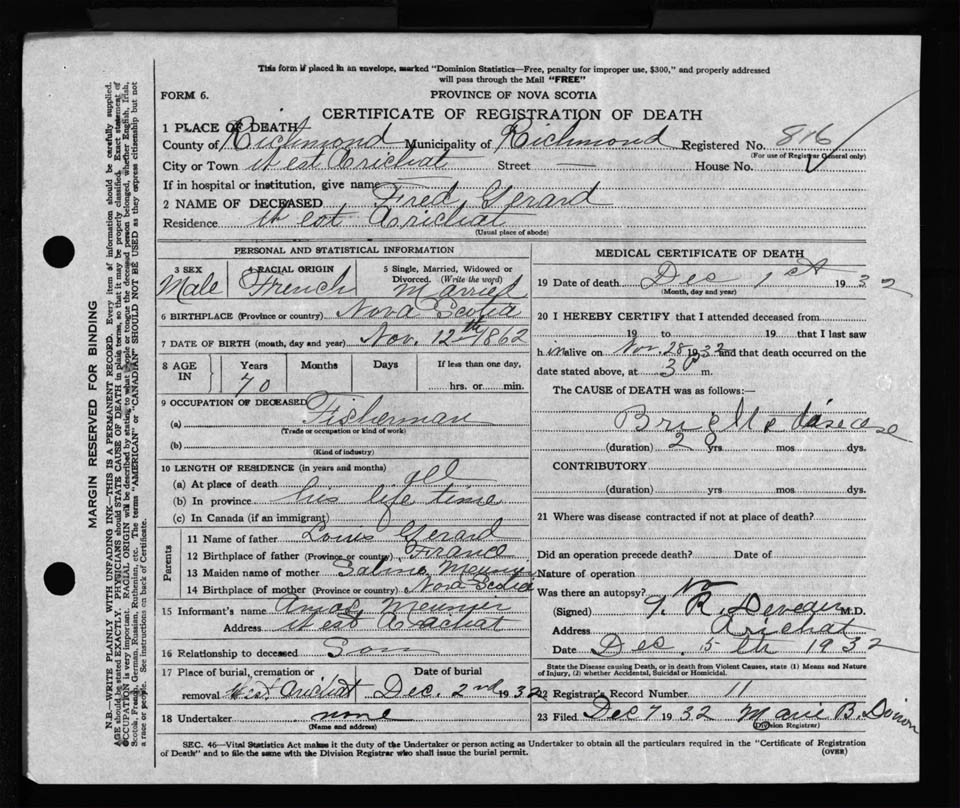 This form if placed in an envelope, marked "Dominion Statistics—Free, penalty for improper use, $300," and properly addressed
will pass through the Mail "FREE"
FORM 6.
PROVINCE OF NOVA SCOTIA
CERTIFICATE OF REGISTRATION OF DEATH
1 PLACE OF DEATH
County of Richmond Municipality of Richmond Registered No. 816
(For use of Registrar General only)
City or Town West Arichat Street House No.
If in hospital or institution, give name
2 NAME OF DECEASED Fred Gerard
Residence West Arichat
(Usual place of abode)
PERSONAL AND STATISTICAL INFORMATION
3 SEX Male
4 RACIAL ORIGIN French
5 Single, Married, Widowed or Divorced. (Write the word) Married
6 BIRTHPLACE (Province or country) Nova Scotia
7 DATE OF BIRTH (month, day and year) Nov. 12th 1862
8 AGE IN Years 70 Months Days If less than one day, hrs. or min.
9 OCCUPATION OF DECEASED
(a) Fisherman
(Trade or occupation or kind of work)
(b)
(Kind of industry)
10 LENGTH OF RESIDENCE (in years and months)
(a) At place of death all
(b) In province his life time
(c) In Canada (if an immigrant)
Parents
11 Name of father Louis Gerard
12 Birthplace of father (Province or country) France
13 Maiden name of mother Meunier
14 Birthplace of mother (Province or country) Nova Scotia
15 Informant's name Amos Meunier
Address West Arichat
16 Relationship to deceased Son
17 Place of burial, cremation or removal West Arichat Date of burial Dec. 2nd 1932
18 Undertaker none
(Name and address)
MEDICAL CERTIFICATE OF DEATH
19 Date of death Dec 1st 1932
(Month, day and year)
20 I HEREBY CERTIFY that I attended deceased from
19 to 19 that I last saw
him alive on Nov. 28 1932 and that death occurred on the
date stated above, at 3 P m.
The CAUSE of DEATH was as follows:—
Brights disease
(duration) 2 yrs mos dys.
CONTRIBUTORY
(duration) yrs mos dys.
21 Where was disease contracted if not at place of death?
Did an operation precede death? Date of
Nature of operation
Was there an autopsy? No
(Signed) R. M.D.
Address Arichat
Date Dec. 5th 1932
State the Disease causing Death, or in death from Violent Causes, state (1) Means and Nature
of Injury, (2) whether Accidental, Suicidal or Homicidal.
22 Registrar's Record Number 11
23 Filed Dec 7 1932 Marie B. Doiron
Division Registrar)
SEC. 46—Vital Statistics Act makes it the duty of the Undertaker or person acting as Undertaker to obtain all the particulars required in the "Certificate of Registration
of Death" and to file the same with the Division Registrar who shall issue the burial permit.
(OVER)
MARGIN RESERVED FOR BINDING
N.B.—WRITE PLAINLY WITH UNFADING INK—THIS IS A PERMANENT RECORD. Every item of information should be carefully supplied.
AGE should be stated EXACTLY. PHYSICIANS should STATE CAUSE OF DEATH in plain terms, so that it may be properly classified. Exact statement of
OCCUPATION is very important. RACIAL ORIGIN will be described by stating to what people or tongue the deceased person belonged, whether English, Irish,
Scotch, French, German, Russian, Ruthenian, etc. The terms "AMERICAN" or "CANADIAN" SHOULD NOT BE USED as they express citizenship but not
a race or people. See instructions on back of Certificate.